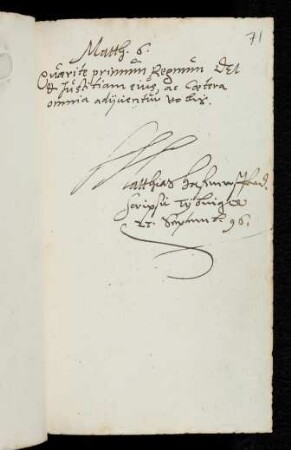 71
Matth. 6.
Quærite primum Regnum DEI
& Justitiam eius, ac Cætera
omnia adjicientur vobis.
Matthias
scripsit Tybingæ
Septemb. 96.